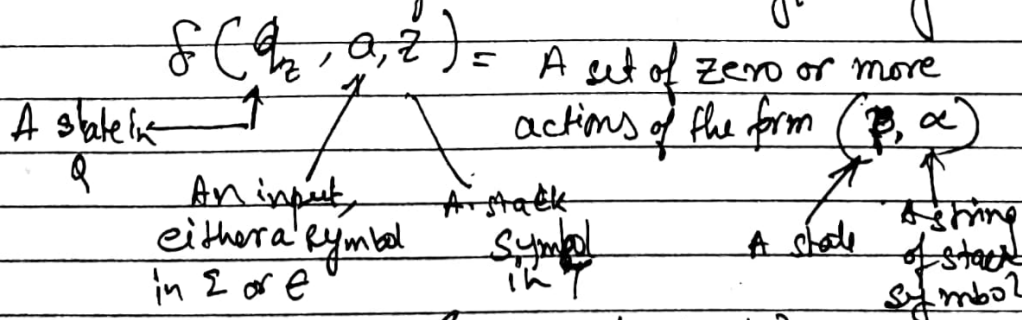 δ(q_z, a, z) = A set of zero or more
actions of the form (p, α)
A state in
Q
An input,
either a symbol
in Σ or ϵ
A stack
Symbol
in Γ
A state
A string
of stack
symbol